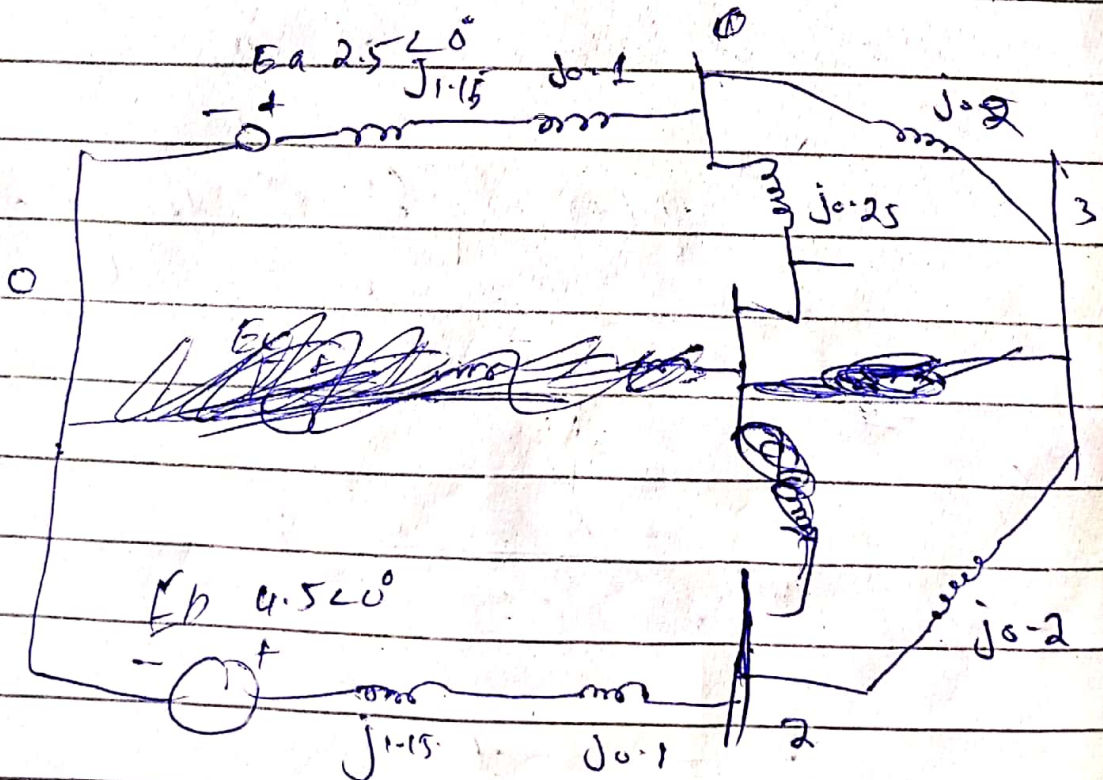 ①
Ea 2.5∠0°
j1.15 j0.1
j0.2
- +
j0.25
3
0
Eb 4.5∠0°
- +
j0.2
j1.15 j0.1
2